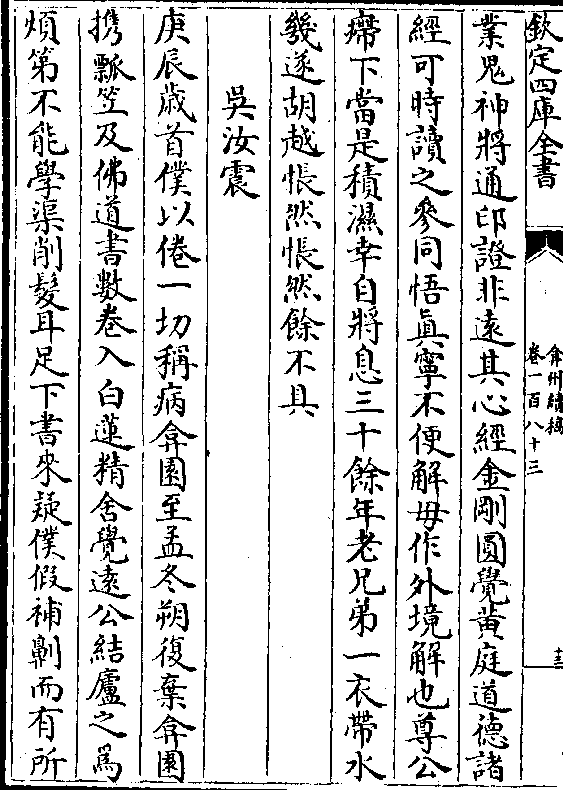 欽定四庫全書
弇州續稿
卷一百八十三
十三
業鬼神將通印證非遠其心經金剛圓覺黄庭道德諸
經可時讀之參同悟眞寧不便解毋作外境解也尊公
㿃下當是積濕幸自將息三十餘年老兄弟一衣帶水
幾遂胡越悵然悵然餘不具
吳汝震
庚辰歳首僕以倦一切稱病弇園至孟冬朔復棄弇園
携瓢笠及佛道書數卷入白蓮精舍覺遠公結廬之為
煩第不能學渠削髮耳足下書來疑僕假補劓而有所